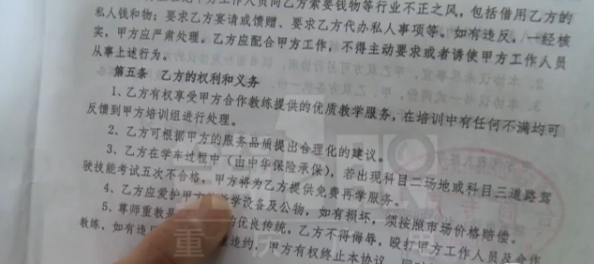 甲方工作人员向乙方索要钱物等行业不正之风,包括借用乙方的
私人钱和物;要求乙方宴请或馈赠、要求乙方代办私人事项等。如有违反,一经核
实,甲方应严肃处理。乙方应配合甲方工作,不得主动要求或者诱使甲方工作人员
从事上述行为。
第五条 乙方的权利和义务
1、乙方有权享受甲方合作教练提供的优质教学服务,在培训中有任何不满均可
反馈到甲方培训组进行处理。
2、乙方可根据甲方的服务品质提出合理化的建议。
3、乙方在学车过程中(由中华保险承保),若出现科目二场地或科目三道路驾
驶技能考试五次不合格,甲方将为乙方提供免费再学服务。
4、乙方应爱护甲方 学设备及公物,如有损坏,须按照市场价格赔偿。
5、尊师重教是 的优良传统,乙方不得侮辱,殴打甲方工作人员及合作
教练,如有违 造约,甲方有权终止本协议
重庆